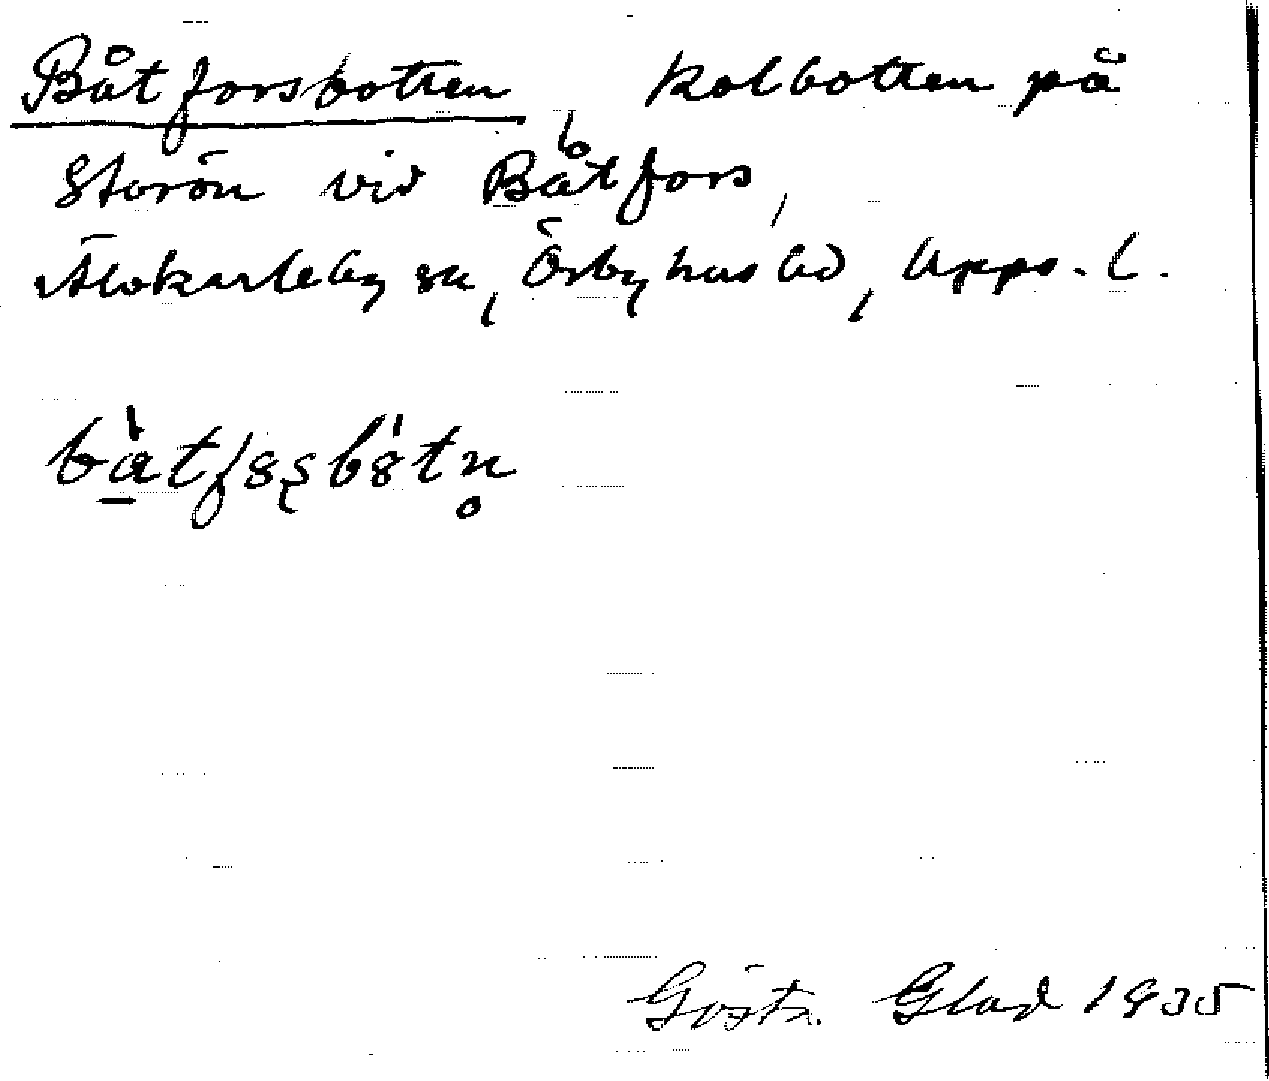 Båtforsbotten kolbotten på
Storön vid Båtfors,
Älvkarleby sn, Örbyhus hd, Upps. l.
Gösta Glad 1935